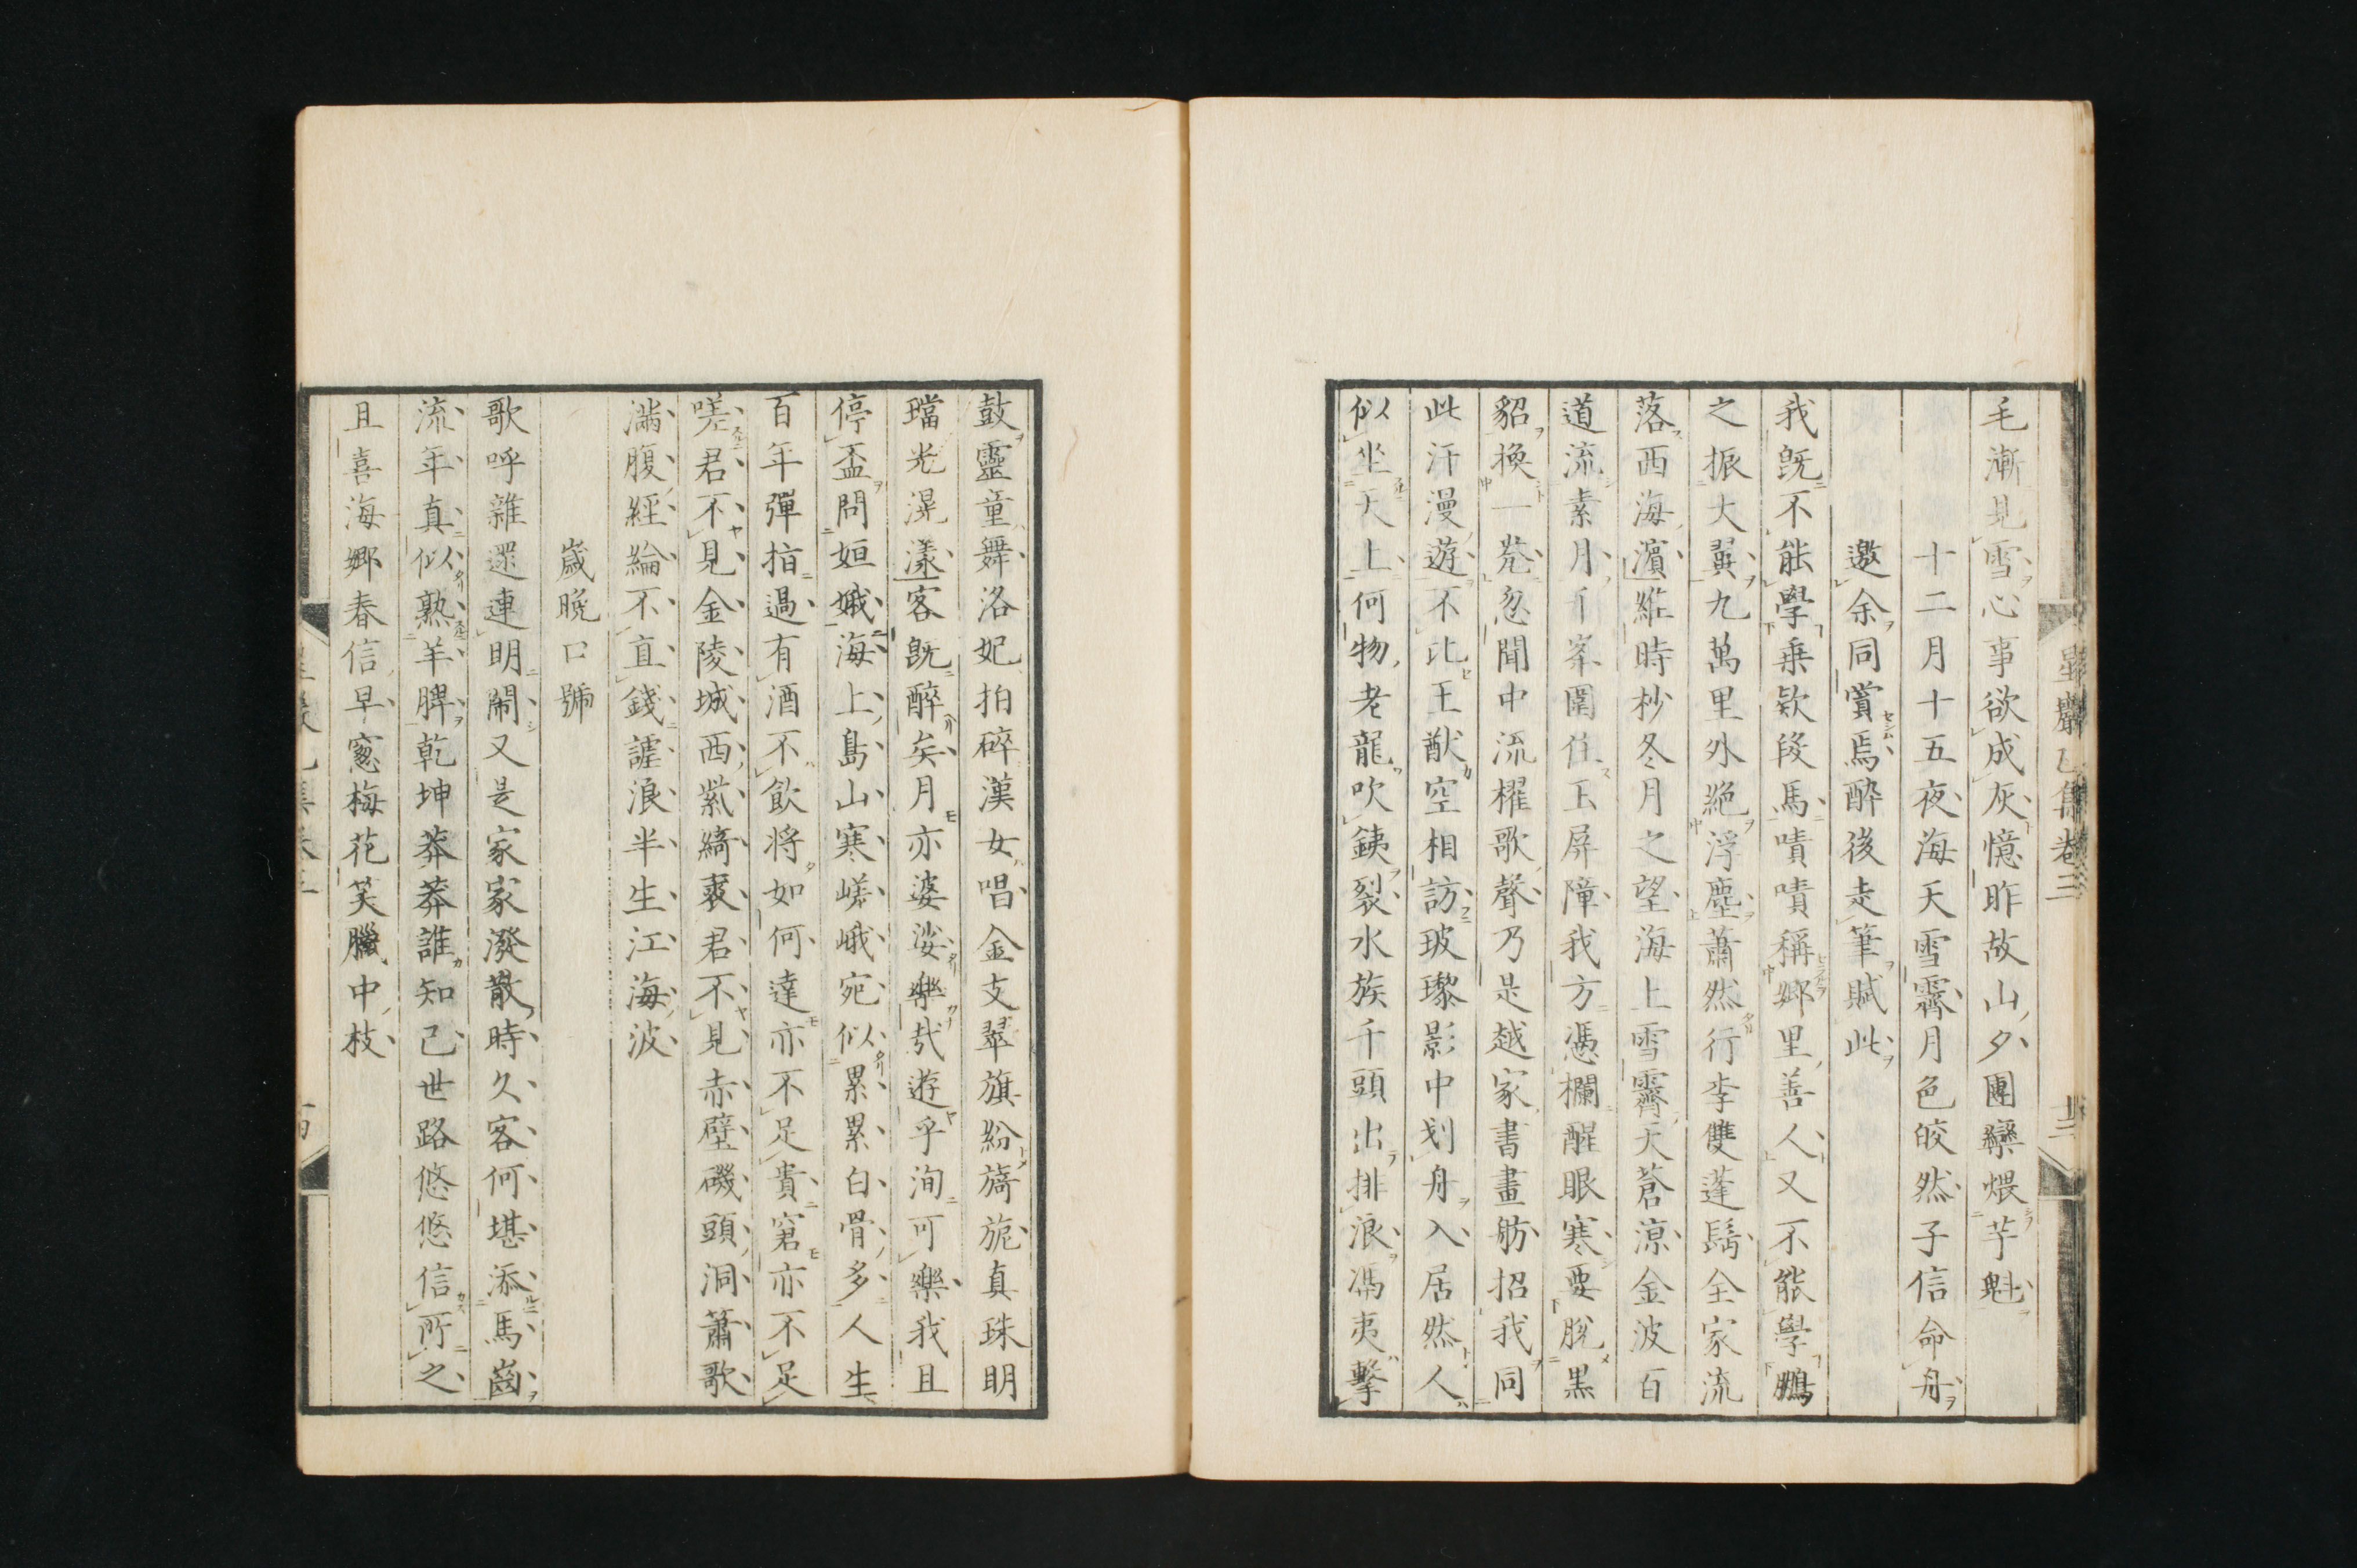 毛漸見雪心事欲成灰憶昨故山夕團欒煨芋魁
十二月十五夜海天雪霽月色皎然子信命舟
邀余同賞焉醉後走筆賦此
我既不能學乗欵段馬嘖嘖稱郷里善人又不能學鵬
之振大翼九萬里外絶浮塵蕭然行李雙蓬鬂全家流
落西海濵維時杪冬月之望海上雪霽天蒼凉金波百
道流素月千峯圍住玉屏障我方憑欄醒眼寒要脱黒
貂換一甖忽聞中流櫂歌聲乃是越家書畫舫招我同
此汗漫遊不比王猷空相訪玻瓈影中划舟入居然人
似坐天上何物老龍吹銕裂水族千頭出排浪馮夷擊
鼓靈童舞洛妃拍碎漢女唱金支翠旗紛旖旎真珠明
璫光滉漾客既醉矣月亦婆娑樂哉遊乎洵可樂我且
停盃問姮娥海上島山寒嵯峨宛似累累白骨多人生
百年彈指過有酒不飲將如何達亦不足貴窘亦不足
嗟君不見金陵城西紫綺裘君不見赤壁磯頭洞簫歌
滿腹經綸不直錢謔浪半生江海波
歳晩口號
歌呼雜遝連明閙又是家家潑散時久客何堪添馬齒
流年真似熟羊脾乾坤莽莽誰知己世路悠悠信所之
且喜海郷春信早窓梅花笑臘中枝
星巖乙集卷三